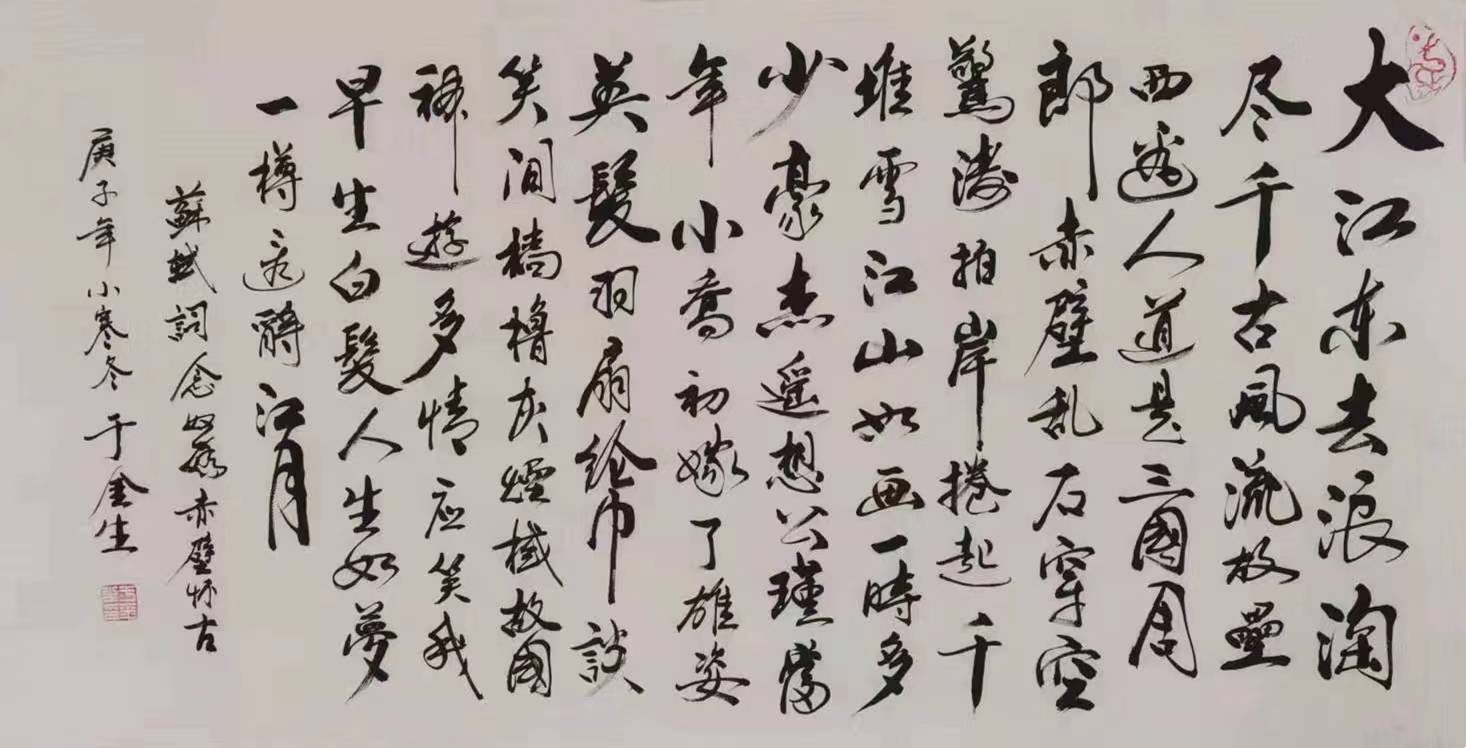 大江东去浪淘
尽千古風流故壘
西邊人道是三國周
郎赤壁乱石穿空
驚濤拍岸捲起千
堆雪江山如画一時多
少豪杰遥想公瑾當
年小喬初嫁了雄姿
英髮羽扇纶巾談
笑间檣櫓灰煙故國
神遊多情应笑我
早生白髮人生如夢
一樽还酹江月
蘇軾詞念奴嬌赤壁怀古
庚子年小寒冬于金生